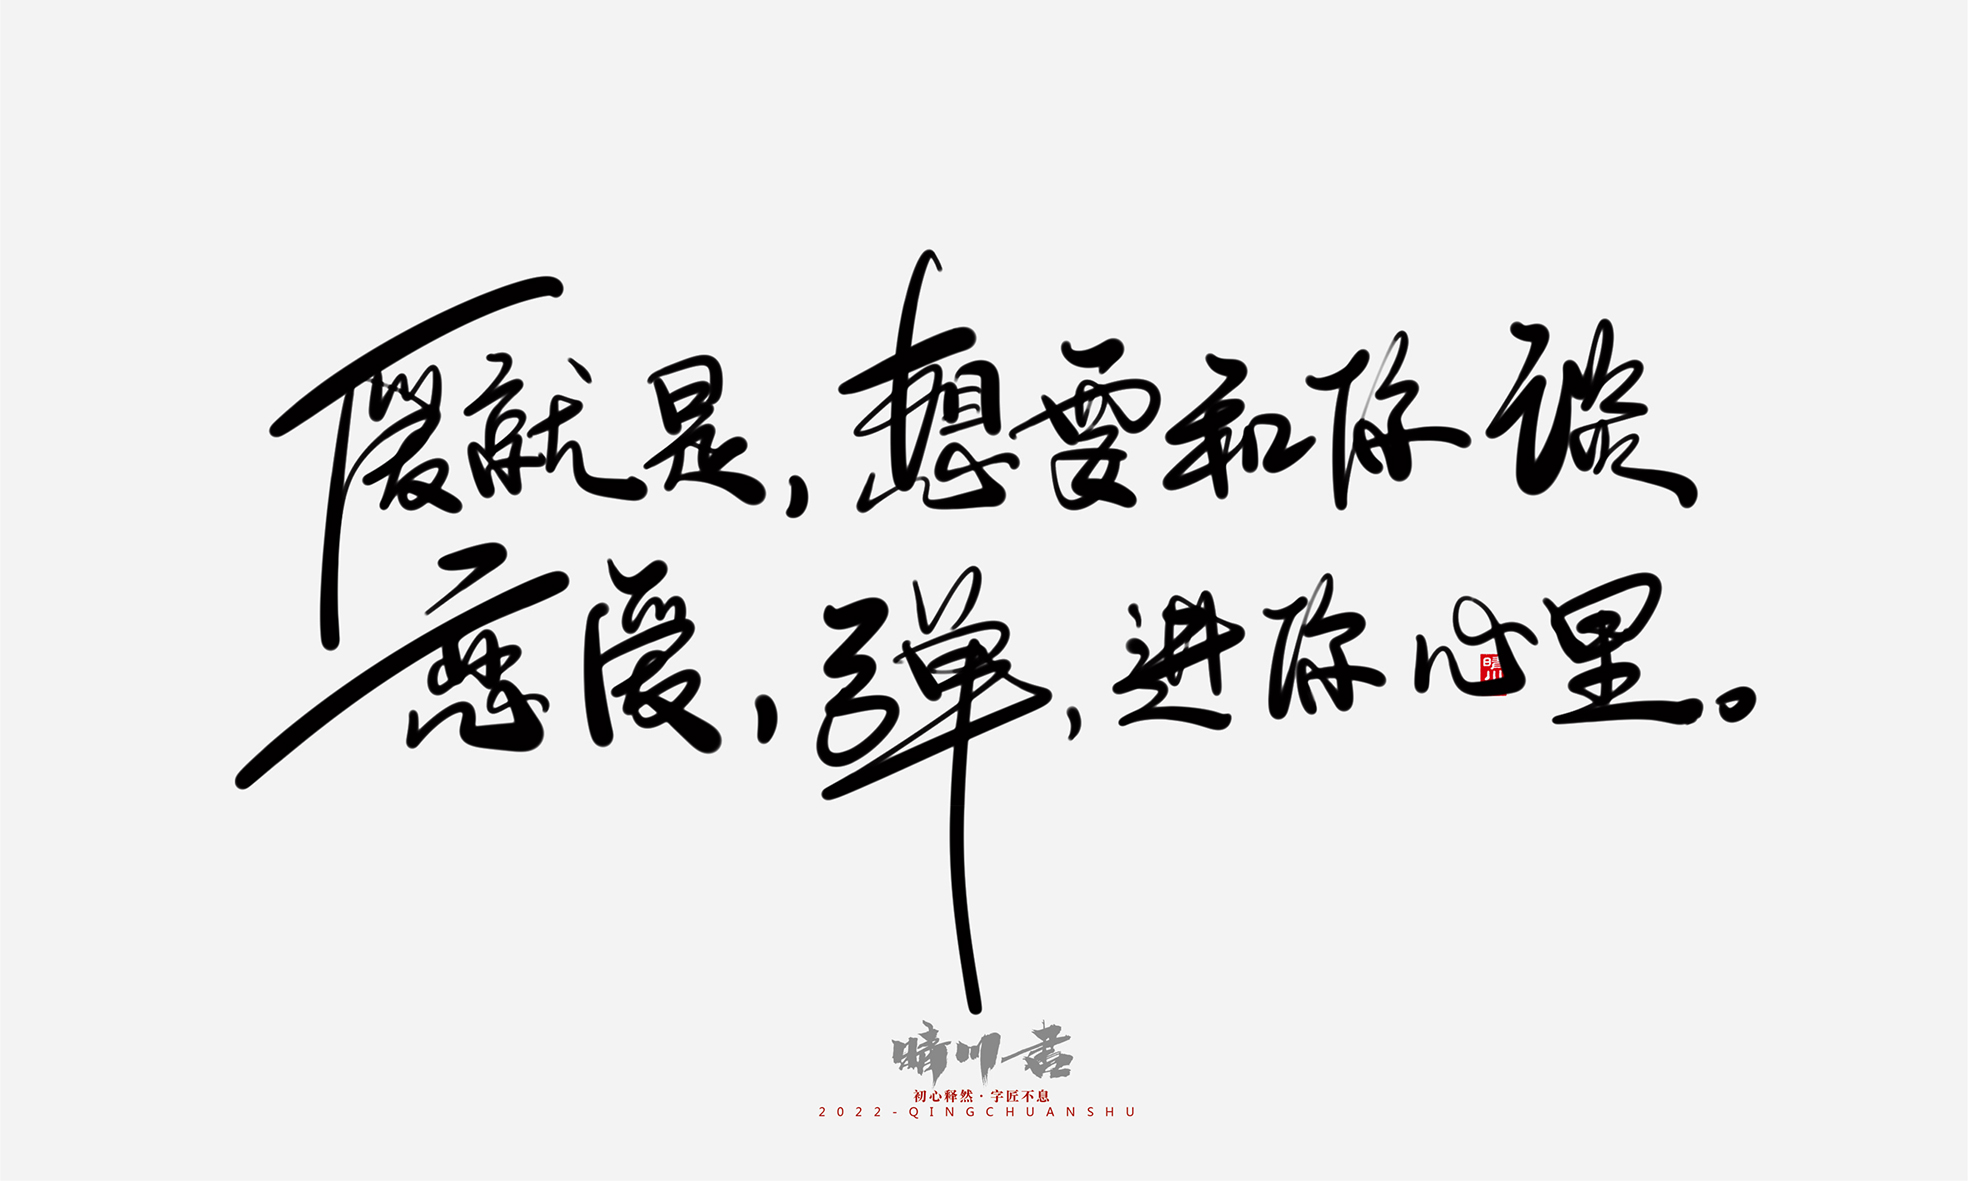 就是，想要和你谈
恋爱，弹，进你心里。
晴川
晴川书
初心释然·字匠不息
2022-QINGCHUANSHU